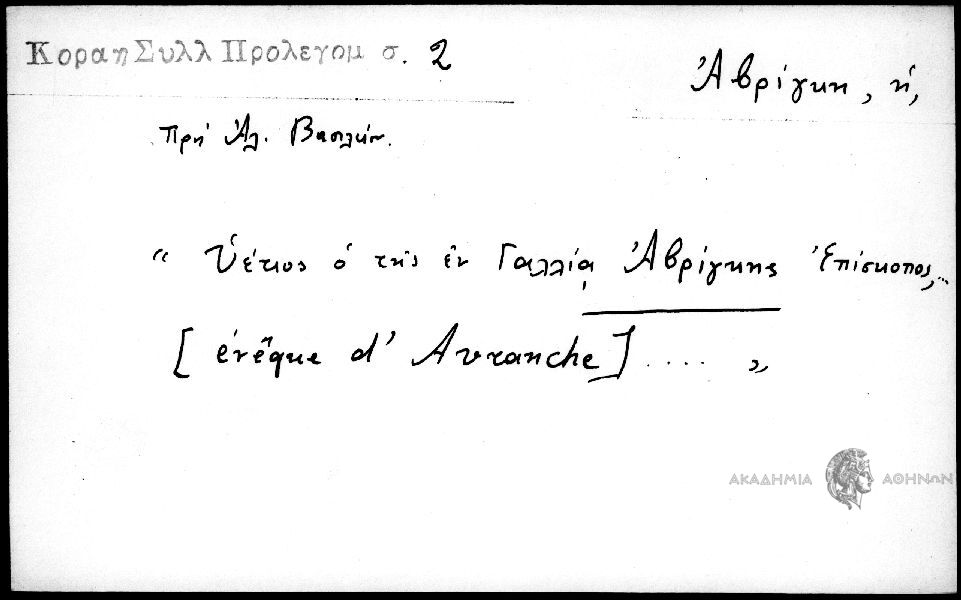 Κοραη Συλλ Προλεγομ σ. 2
Ἀβρίγκη, ἡ,
Πρὸς Ἀλ. Βασιλείου.
“ Ὑέτιος ὁ τῆς ἐν Γαλλίᾳ Ἀβρίγκης Ἐπίσκοπος,...
[ évêque d' Avranche ] .... „
ΑΚΑΔΗΜΙΑ ΑΘΗΝΩΝ